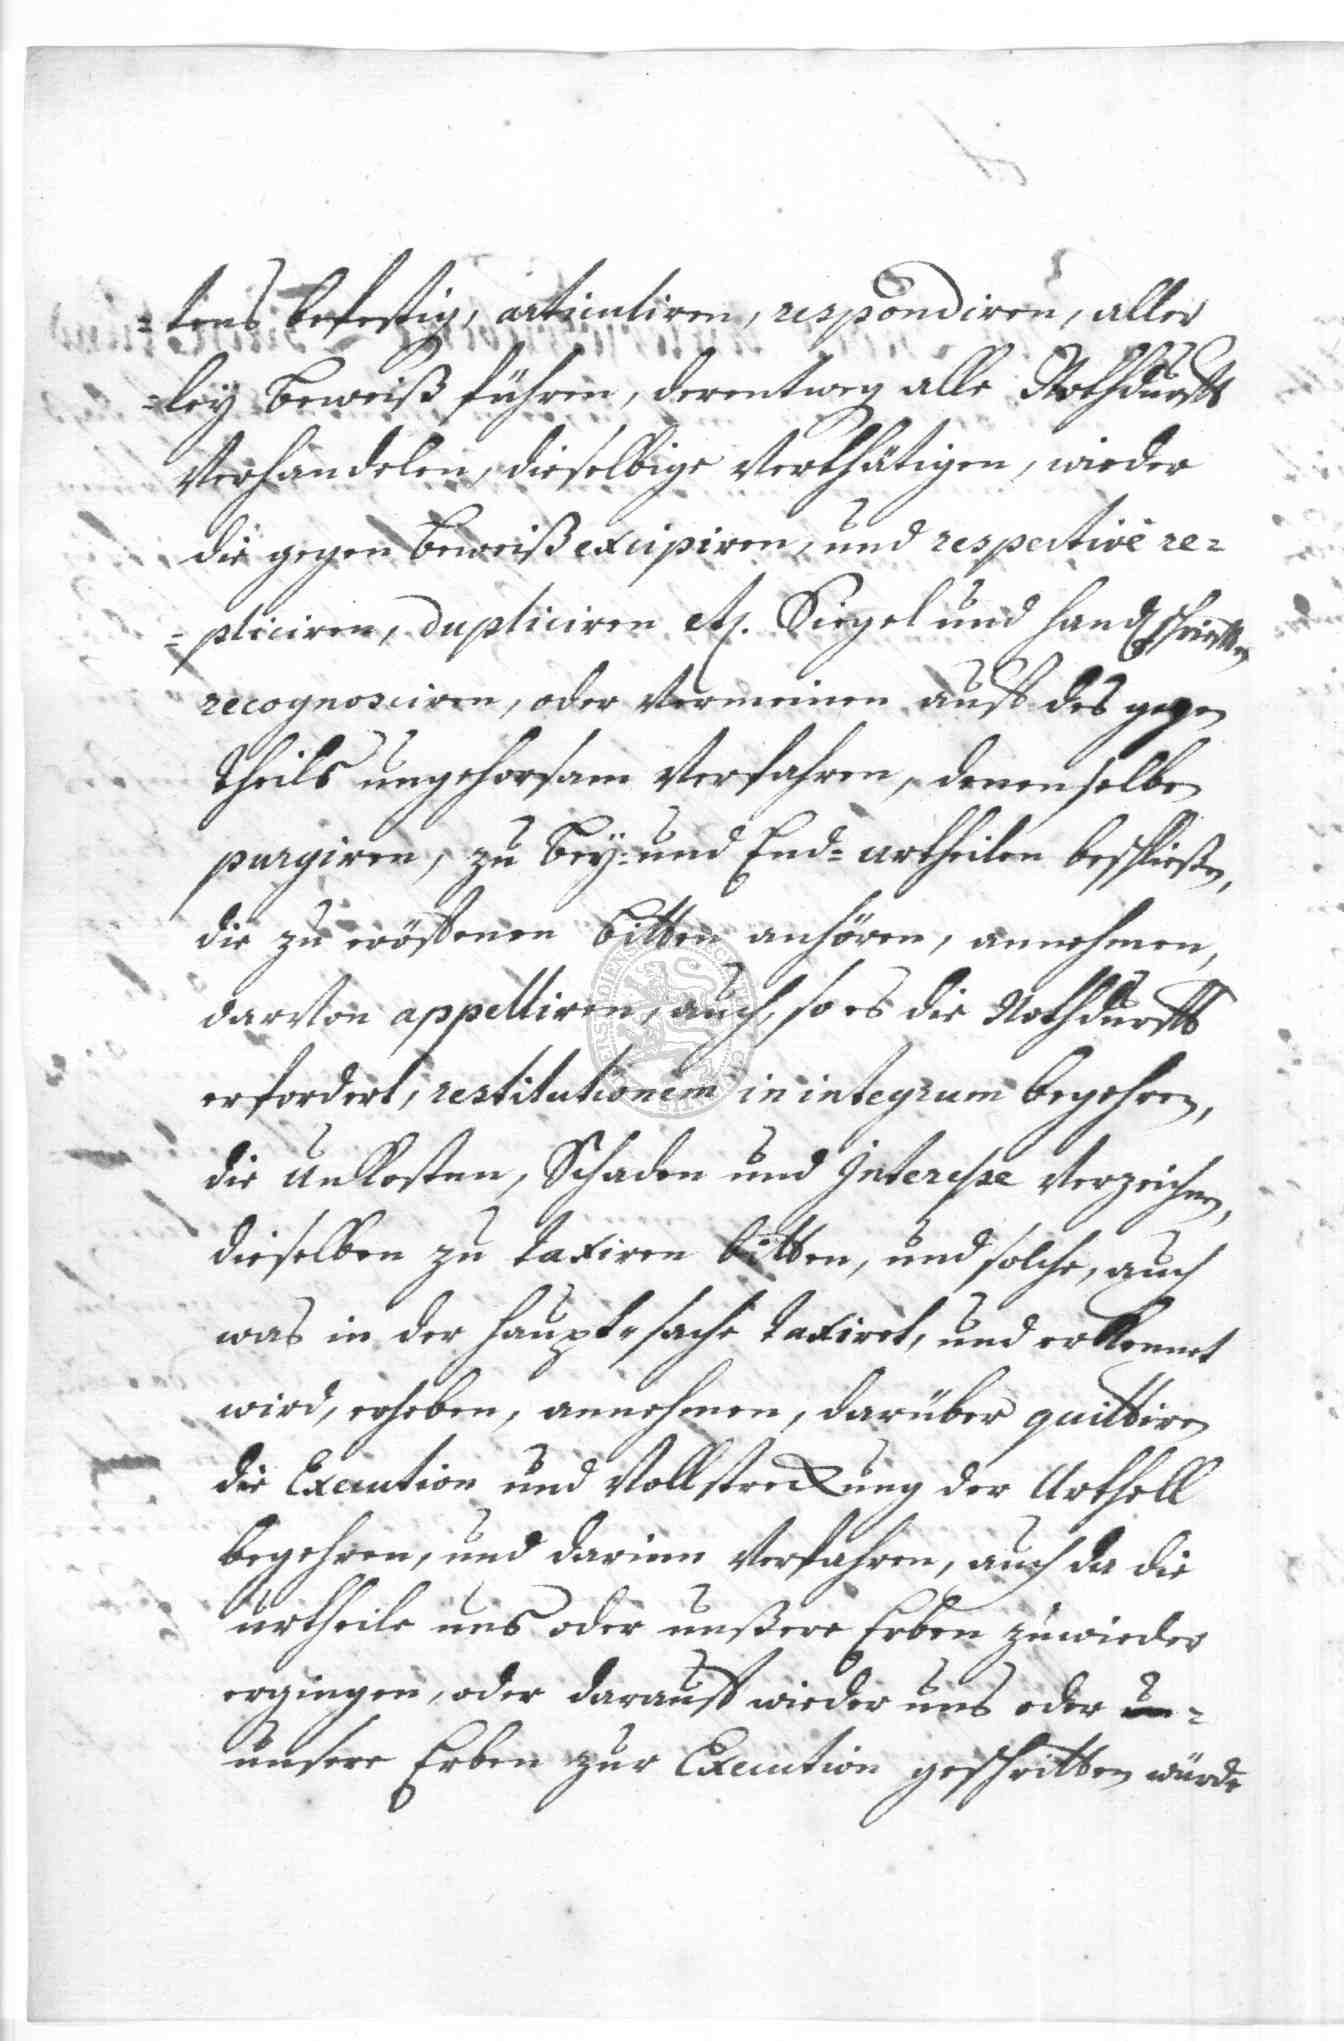 =tens befestig, articuliren, respondiren, aller
=ley Beweiß führen, derentweg alle Nothdurfft
verhandelen, dieselbige verthätigen, wieder
die gegen Beweiß excipiren, und respectivè re=
=pliciren, dupliciren etc. Siegel und handschrifften
recognosciren, oder verneinen auff des gegen
theils ungehorsam verfahren, denenselben
purgiren, zu Bey= und End= urtheilen beschließen,
die zu eröffenen bitten anhören, annehmen,
darvon appelliren, auch, so es die Nothdurfft
erfordert, restitutionem in integrum begehren,
die Unkosten, Schaden und Interesse verzeichnen,
dieselben zu taxiren bitten, und solche, auch
was in der haupt=sache taxiret, und erkennet
wird, erheben, annehmen, darüber quittiren
die Execution und Vollstreckung der Urthell
begehren, und darinn verfahren, auch da die
urtheile uns oder unßere Erben zuwieder
ergingen, oder darauff wieder uns oder un=
unsere Erben zur Execution geschritten würde